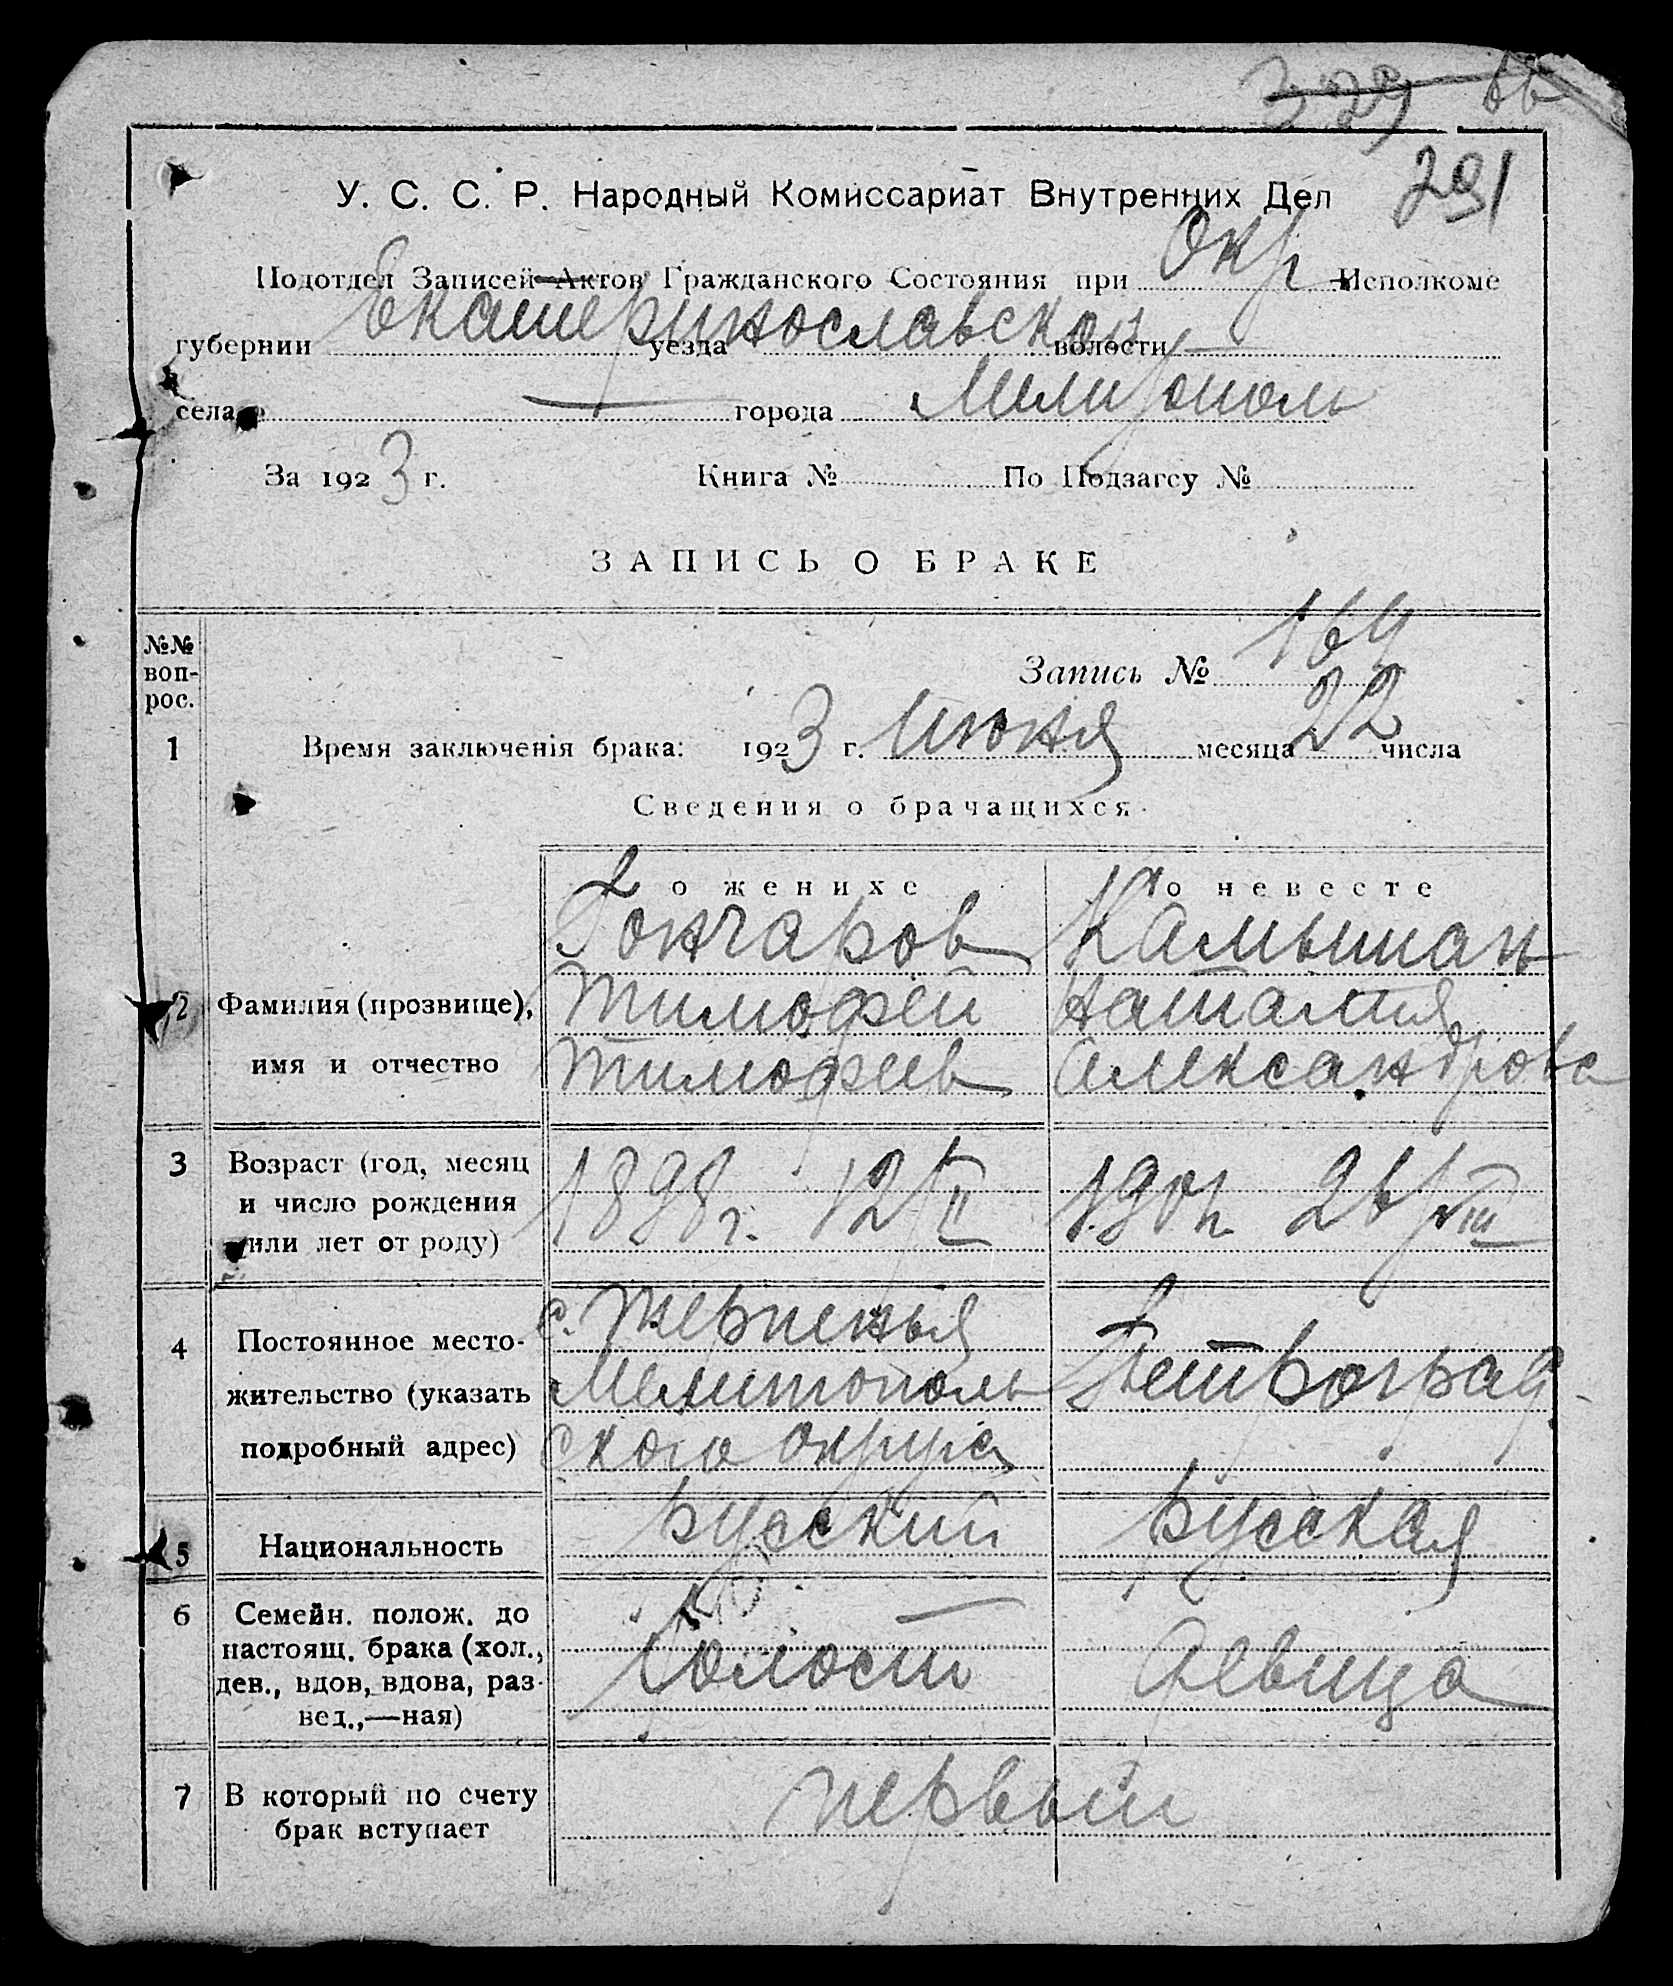 329 66
291
У. С. С. Р. Народный Комиссариат Внутренних Дел
Подотдел Записей Актов Гражданского Состояния при Окр Исполкоме
губернии Екатеринославской уезда волости —
села — города Мелитополь
За 1923 г. Книга № По Подзагсу №
ЗАПИСЬ О БРАКЕ
№№ воп-рос.
Запись № 169
1 Время заключенія брака: 1923 г. июня месяца 22 числа
Сведения о брачащихся
о женихе о невесте
Гончаров Камышан
2 Фамилия (прозвище), Тимофей Наталия
имя и отчество Тимофеев Александрова
3 Возраст (год, месяц
и число рождения 1898 г. 12/II 1901 26/VIII
или лет от роду)
с. Терпенья
4 Постоянное место-
жительство (указать Мелитополь Петроград
подробный адрес) ского округа
5 Национальность русский русская
6 Семейн. полож. до
настоящ. брака (хол., Холост девица
дев., вдов, вдова, раз-
вед.,—ная)
7 В который по счету первый
брак вступает